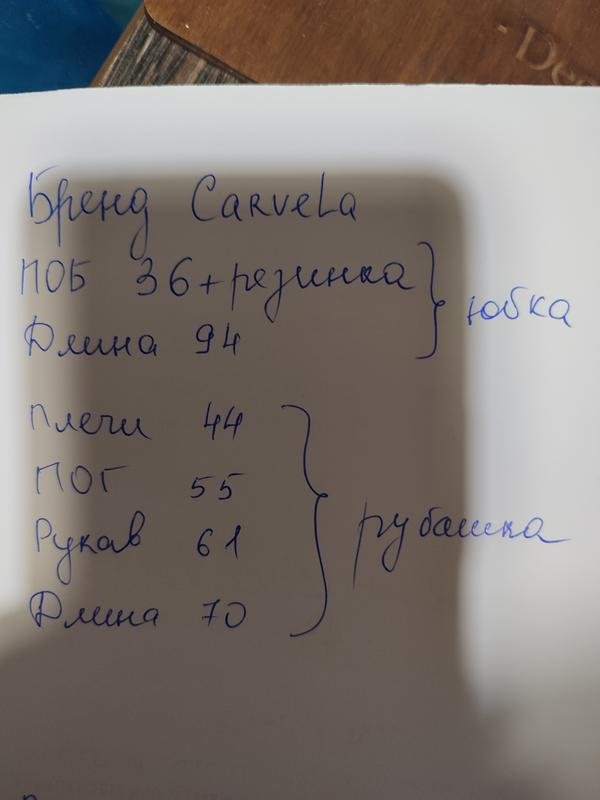 Бренд Carvela
ПОБ 36+резинка
Длина 94
юбка
Плечи 44
ПОГ 55
Рукав 61
Длина 70
рубашка